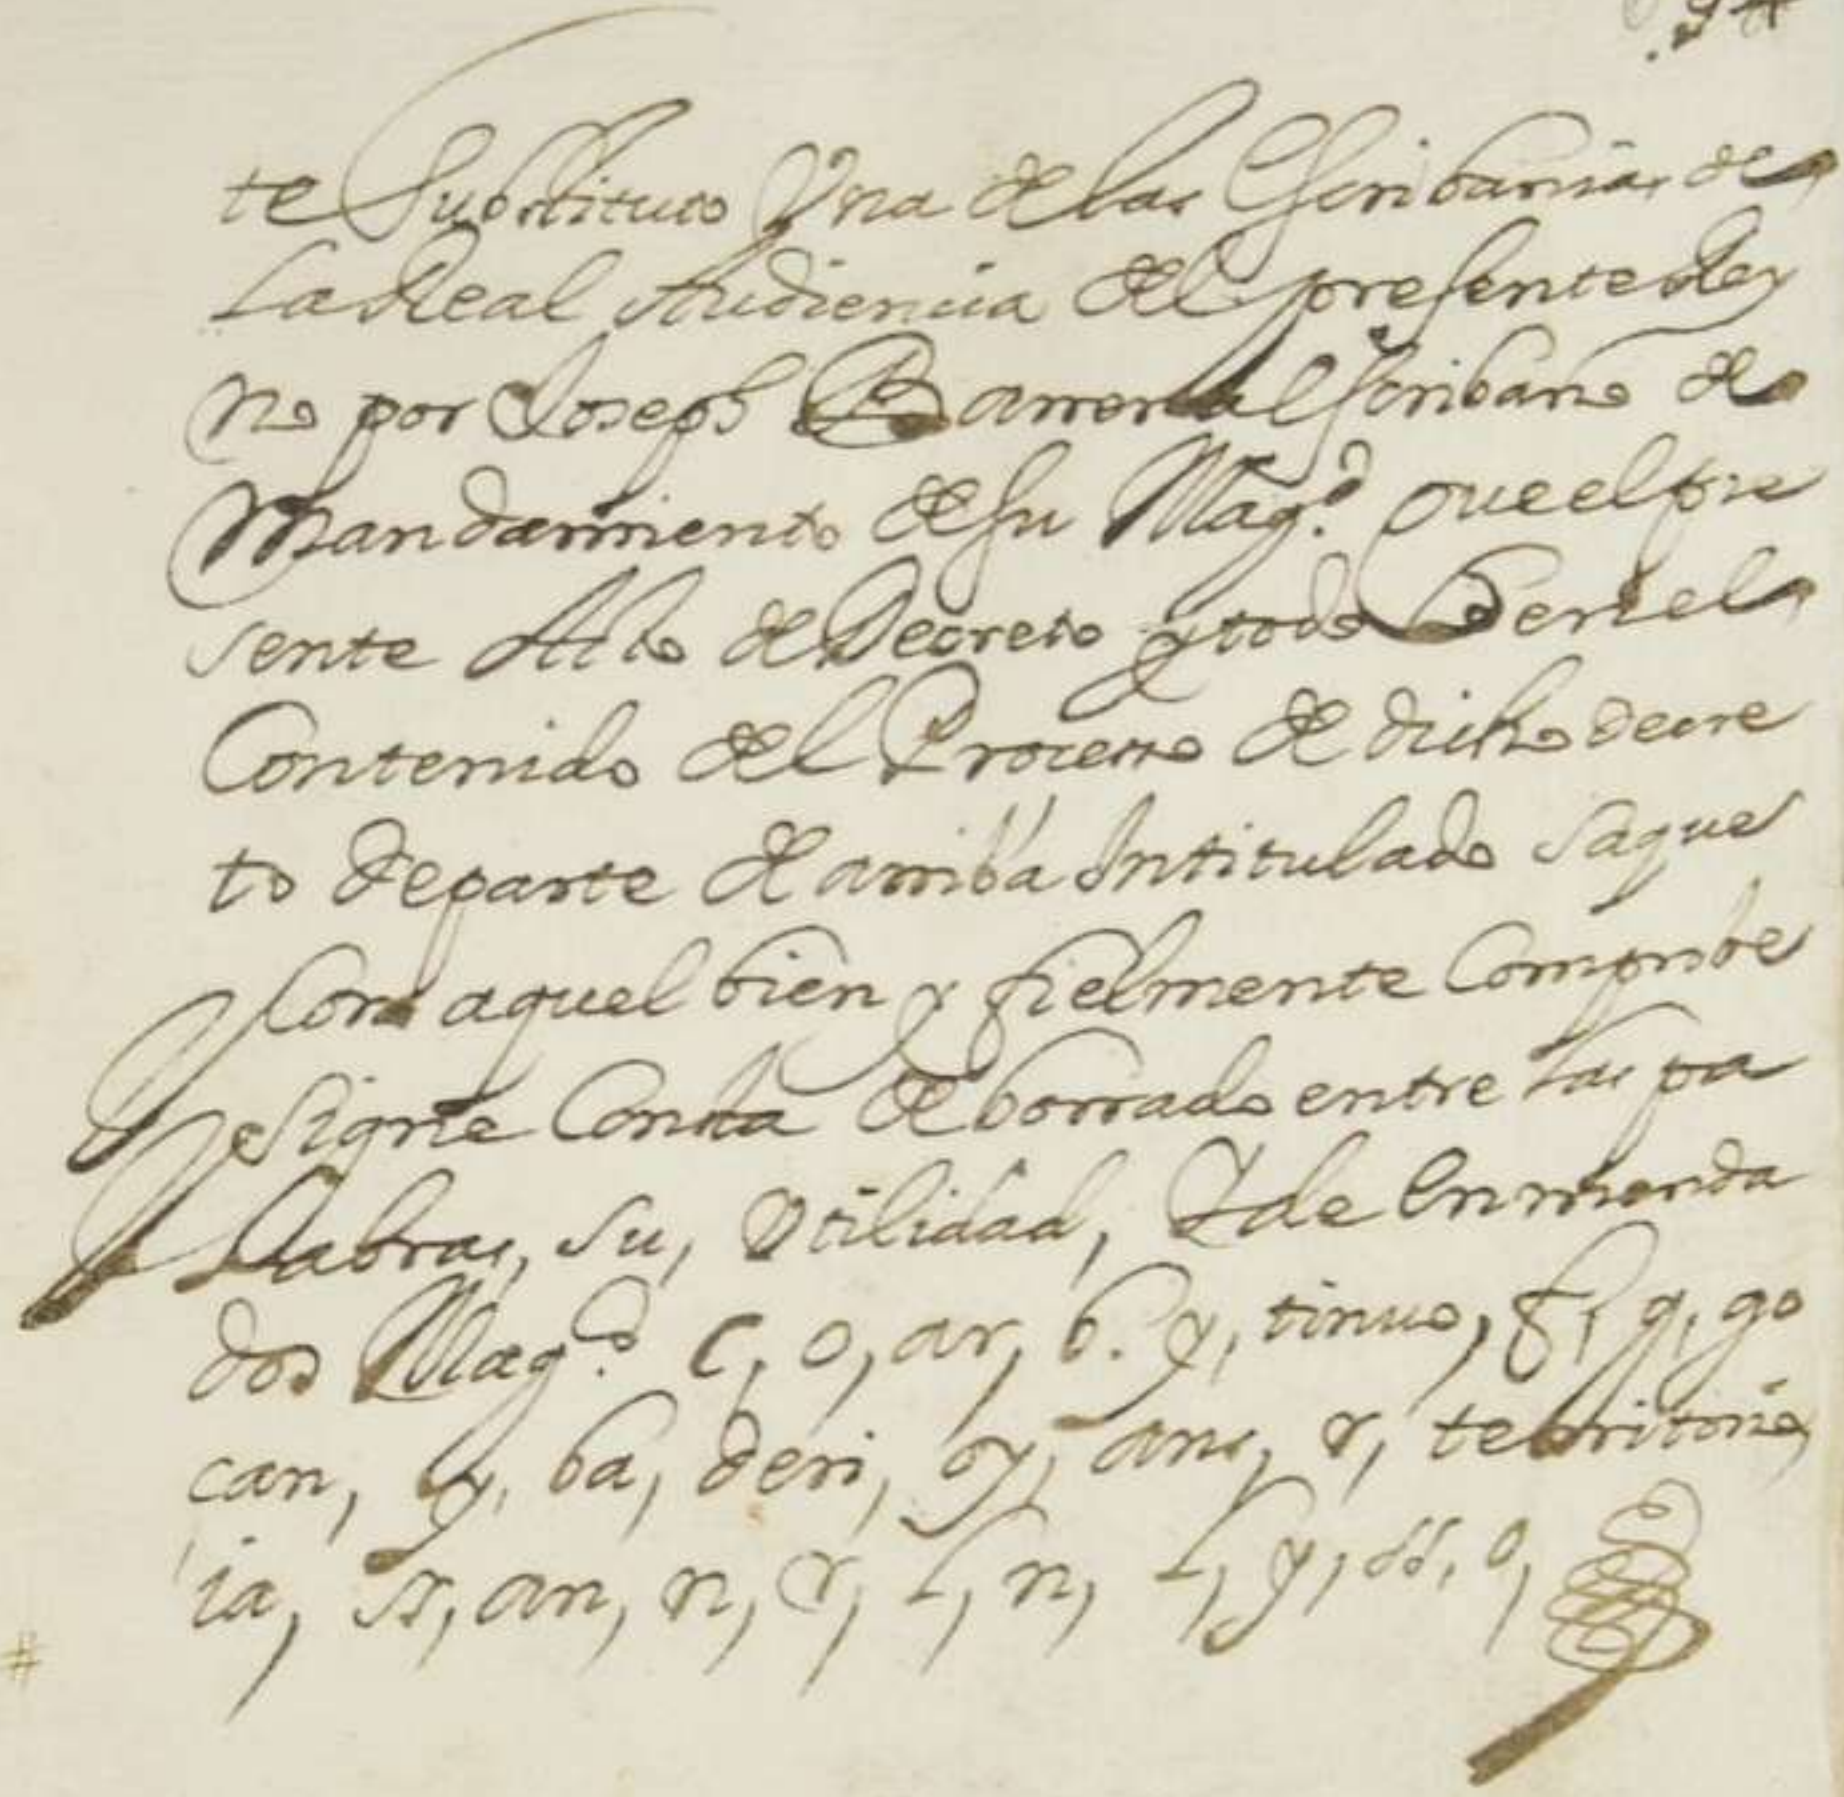 te Substituto Una de las Escribanias de
La Real Audiencia del presente Rey
no por Joseph Barrera Escribano de
Mandamiento de su Mag.d que el pre
sente Acto de Decreto y todo Ser el
Contenido del Processo de dicho decre
to de parte de arriba Intitulado saque
Con aquel bien y fielmente Comprobe
Y signe Consta de borrado entre las pa
Labras, su, Utilidad, Y de Enmenda
dos Mag.d c, o, ar, b. y, tinuo, f, q, go
can, y, ba, deri, oy, ans, r, territorio,
ia, st, an, n, r, L, n, L, y, ss, o,